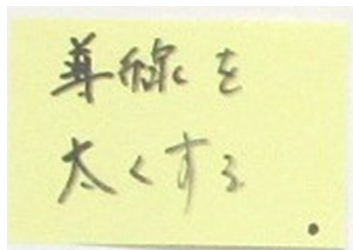 導線を
太くする